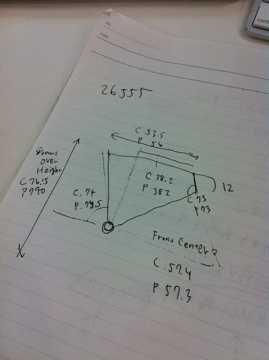 26555
C 53.5
P. 54
Over
Height
C 76.5
P 790
C. 74
P. 73.5
C 78.2
P 382
12
C 73
P 73
Front Center
C 57.4
P 57.3